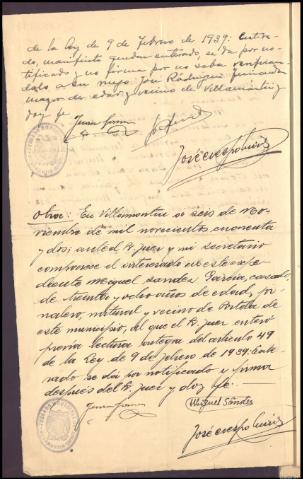 de la Ley de 9 de Febrero de 1939. Entera-
do, manifiesta quedar enterado, se da por no-
tificado y no firma por no saber
a su José Rodríguez
mayor de edad y vecino de Villamontán y
doy fe
José Crespo
Otro: En Villamontán a seis de no-
viembre de mil novecientos cuarenta
y dos, ante el Sr. Juez y mi secretario
comparece el interesado en este expe-
diente Miguel Sandez García, casado,
de treinta y ocho años de edad, jor-
nalero, natural y vecino de
este municipio, al que el Sr. Juez entero
previa lectura íntegra del artículo 49
de la Ley de 9 de febrero de 1939. Ente-
rado se da por notificado y firma
después del Sr. Juez y doy fe:
Miguel Sandez
José Crespo